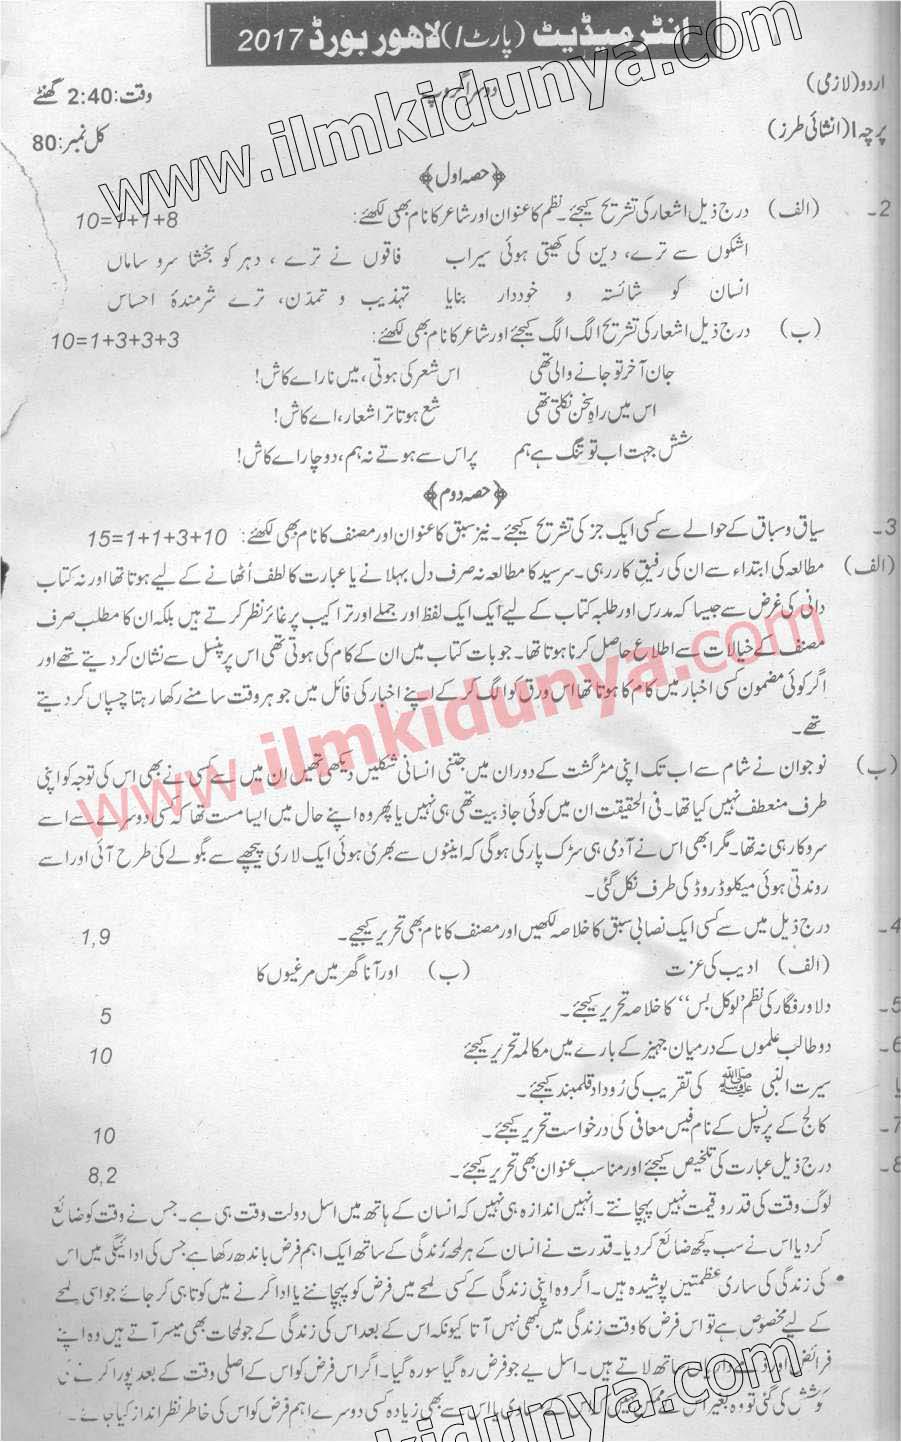 انٹرمیڈیٹ (پارٹ I) لاہور بورڈ 2017
اردو (لازمی) دوسرا گروپ وقت: 2:40 گھنٹے
پرچہ I (انشائی طرز) کل نمبر: 80
﴿حصہ اول﴾
2۔ (الف) درج ذیل اشعار کی تشریح کیجئے۔ نظم کا عنوان اور شاعر کا نام بھی لکھئے: 10=1+1+8
اشکوں سے ترے، دین کی کھیتی ہوئی سیراب فاقوں نے ترے، دہر کو بخشا سرو ساماں
انسان کو شائستہ و خوددار بنایا تہذیب و تمدّن، ترے شرمندۂ احساس
(ب) درج ذیل اشعار کی تشریح الگ الگ کیجئے اور شاعر کا نام بھی لکھئے: 10=1+3+3+3
جان آخر تو جانے والی تھی اس شعر کی ہوتی، میں نار اے کاش!
اس میں راہِ سخن نکلتی تھی شع ہوتا تر اشعار، اے کاش!
شش جہت اب تو تنگ ہے ہم پر اس سے ہوتے نہ ہم، دوچار اے کاش!
﴿حصہ دوم﴾
3۔ سیاق و سباق کے حوالے سے کسی ایک جز کی تشریح کیجئے۔ نیز سبق کا عنوان اور مصنف کا نام بھی لکھئے: 15=1+1+3+10
(الف) مطالعہ کی ابتداء سے ان کی رفیق کار رہی۔ سرسید کا مطالعہ نہ صرف دل بہلانے یا عبارت کا لطف اُٹھانے کے لیے ہوتا تھا اور نہ کتاب
دانی کی غرض سے جیسا کہ مدرس اور طلبہ کتاب کے لیے ایک ایک لفظ اور جملے اور تراکیب پر غائر نظر کرتے ہیں بلکہ ان کا مطلب صرف
مصنف کے خیالات سے اطلاع حاصل کرنا ہوتا تھا۔ جو بات کتاب میں ان کے کام کی ہوتی تھی اس پر پنسل سے نشان کر دیتے تھے اور
اگر کوئی مضمون کسی اخبار میں کام کا ہوتا تھا اس ورق کو الگ کر کے اپنے اخبار کی فائل میں جو ہر وقت سامنے رکھا رہتا چسپاں کر دیتے
تھے۔
(ب) نوجوان نے شام سے اب تک اپنی مٹرگشت کے دوران میں جتنی انسانی شکلیں دیکھی تھیں ان میں سے کسی نے بھی اس کی توجہ کو اپنی
طرف منعطف نہیں کیا تھا۔ فی الحقیقت ان میں کوئی جاذبیت تھی ہی نہیں یا پھر وہ اپنے حال میں ایسا مست تھا کہ کسی دوسرے سے اسے
سروکار ہی نہ تھا۔ مگر ابھی اس نے آدھی ہی سڑک پار کی ہوگی کہ اینٹوں سے بھری ہوئی ایک لاری پیچھے سے بگولے کی طرح آئی اور اسے
روندتی ہوئی میکلوڈ روڈ کی طرف نکل گئی۔
4۔ درج ذیل میں سے کسی ایک نصابی سبق کا خلاصہ لکھیں اور مصنف کا نام بھی تحریر کیجیے۔ 1,9
(الف) ادیب کی عزت (ب) اور آنا گھر میں مرغیوں کا
5۔ دلاور فگار کی نظم ”لوکل بس“ کا خلاصہ تحریر کیجئے۔ 5
6۔ دو طالب علموں کے درمیان جہیز کے بارے میں مکالمہ تحریر کیجئے 10
یا سیرت النبی ﷺ کی تقریب کی رُوداد قلمبند کیجئے۔
7۔ کالج کے پرنسپل کے نام فیس معافی کی درخواست تحریر کیجئے۔ 10
8۔ درج ذیل عبارت کی تلخیص کیجئے اور مناسب عنوان بھی تحریر کیجئے۔ 8,2
لوگ وقت کی قدر و قیمت نہیں پہچانتے۔ انہیں اندازہ ہی نہیں کہ انسان کے ہاتھ میں اسل دولت وقت ہی ہے۔ جس نے وقت کو ضائع
کر دیا اس نے سب کچھ ضائع کر دیا۔ قدرت نے انسان کے ہر لمحہ زندگی کے ساتھ ایک اہم فرض باندھ رکھا ہے جس کی ادائیگی میں اس
کی زندگی کی ساری عظمتیں پوشیدہ ہیں۔ اگر وہ اپنی زندگی کے کسی لمحے میں فرض کو پہچاننے یا ادا کرنے میں کوتاہی کر جائے جو اسی لمحے
کے لیے مخصوص ہے تو اس فرض کا وقت زندگی میں کبھی نہیں آتا کیونکہ اس کے بعد اس کی زندگی کے جو لمحات بھی میسر آتے ہیں وہ اپنے
فرائض اور ذمے داریاں ساتھ لاتے ہیں۔ اسل یے جو فرض رہ گیا سو رہ گیا۔ اگر اس فرض کو اس کے اصلی وقت کے بعد پورا کرنے کی
کوشش کی گئی تو وہ بغیر اس کے ممکن نہیں کہ اس کے مساوی یا اس سے بھی زیادہ کسی دوسرے اہم فرض کو اس کی خاطر نظر انداز کیا جائے۔
www.ilmkidunya.com
www.ilmkidunya.com
kidunya.com